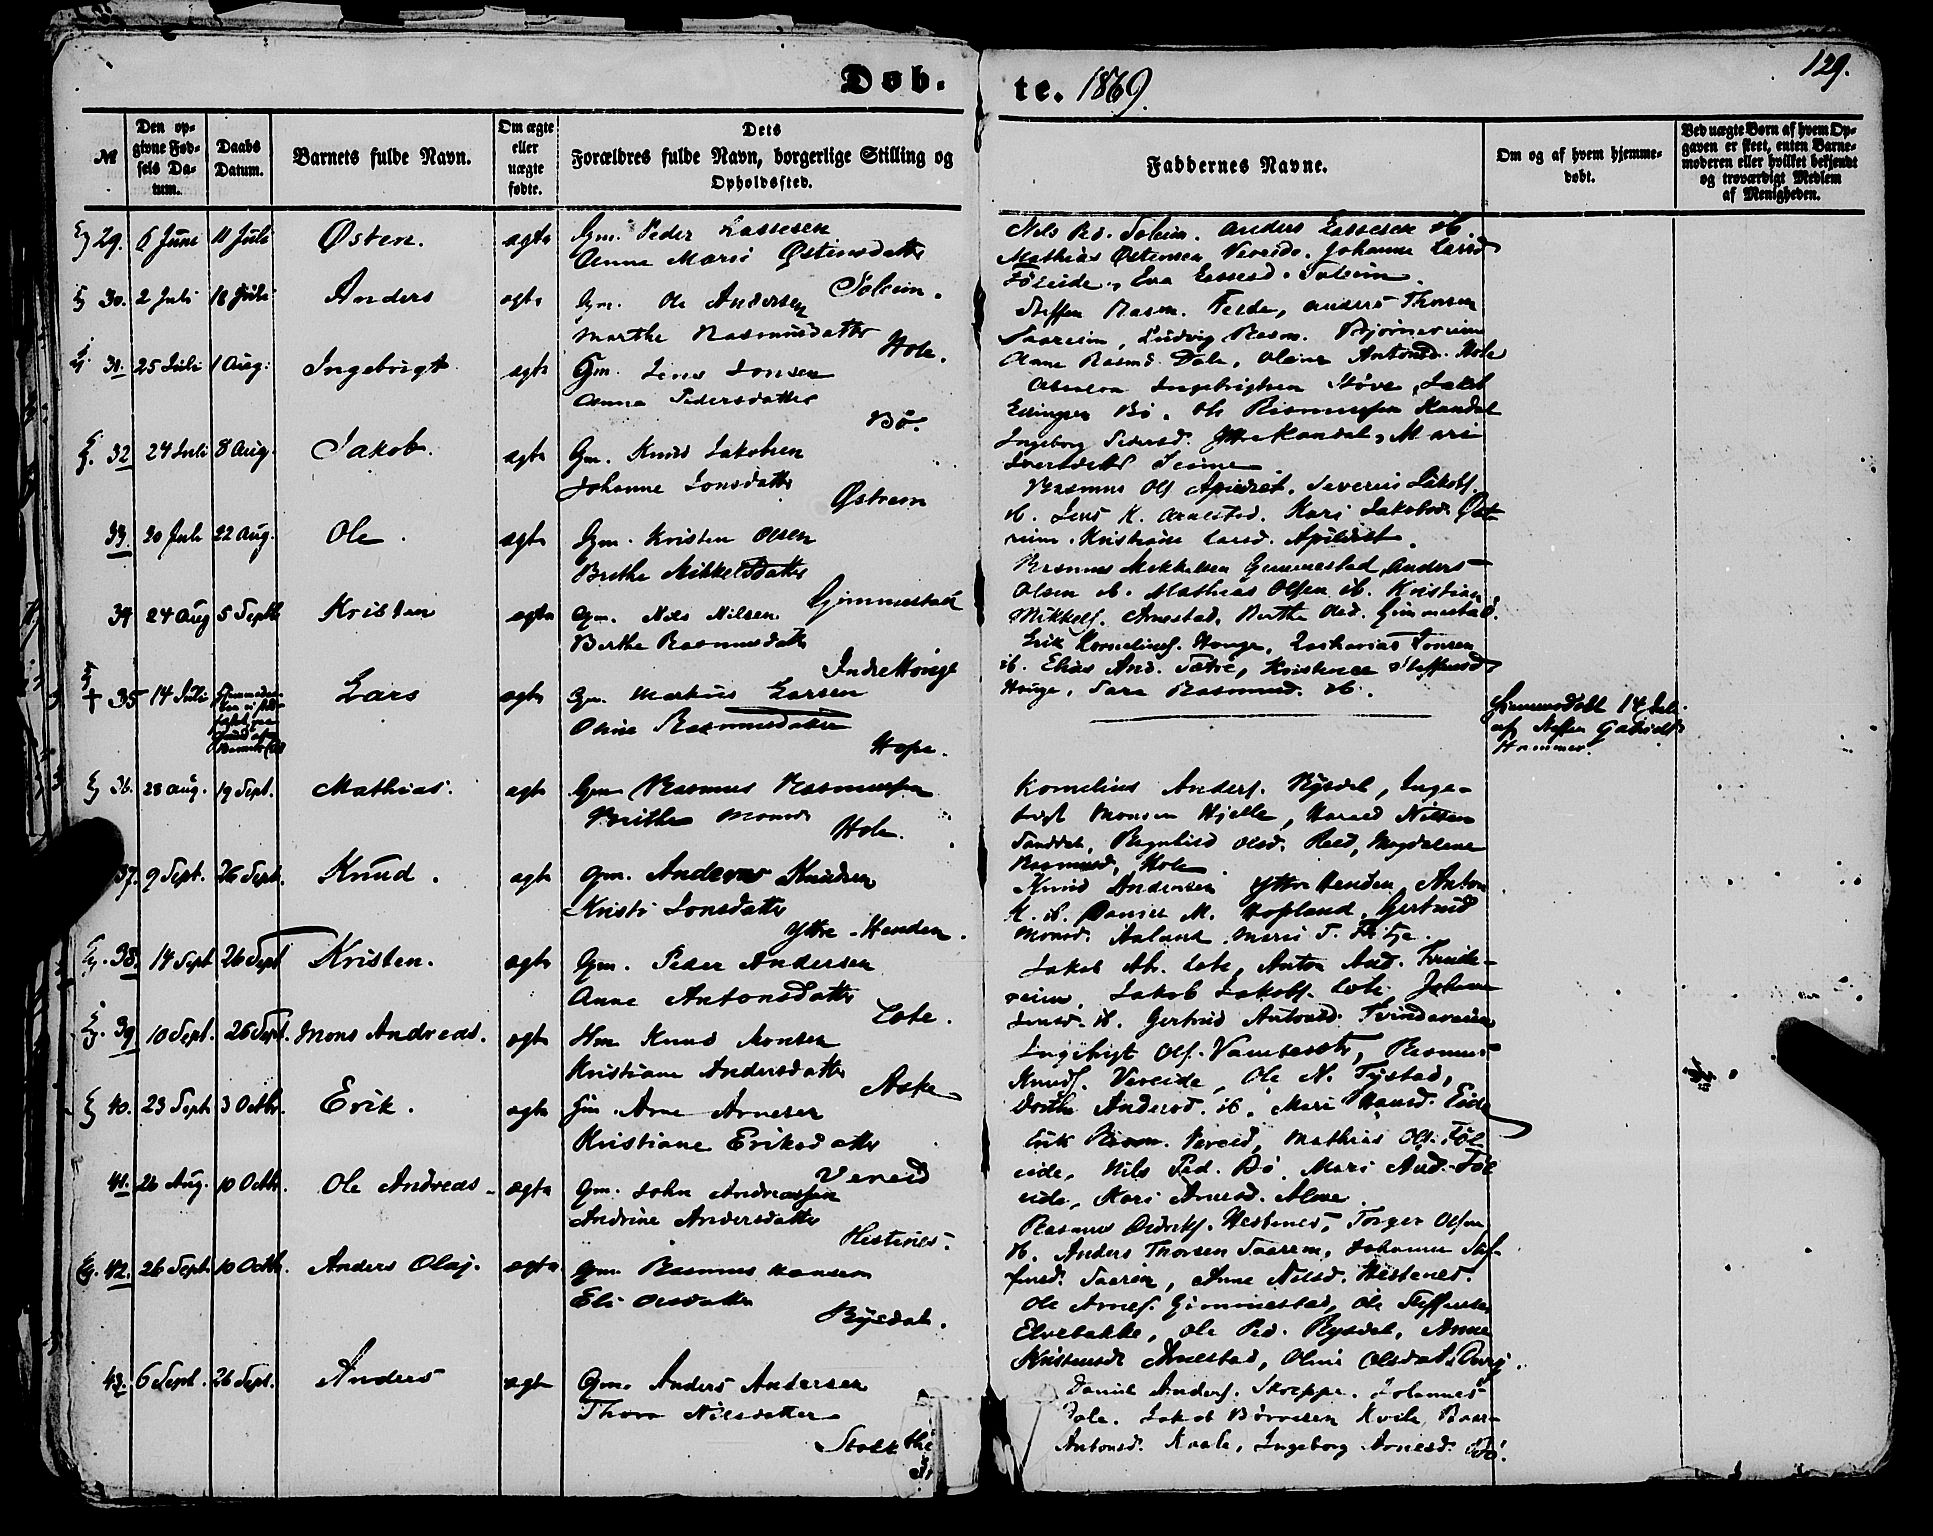 129.
Døb. te. 1869.
№
Den opgivne Fødsels Datum.
Daabs Datum.
Barnets fulde Navn.
Om ægte eller uægte fødte.
Dets Forældres fulde Navn, borgerlige Stilling og Opholdssted.
Faddernes Navne.
Om og af hvem hjemmedøbt.
Ved uægte Børn af hvem Opgaven er skeet, enten Barnemoderen eller hvilket bekjendt og troværdigt Medlem af Menigheden.
29. 6 Juni 11 Juli Østen. ægte Gm. Peder Lassesen
Anne Marie Østensdatter
Soleim.
Nils Ped. Soleim. Anders Lassesen ib.
Mathias Østensen Vereide. Johanne Lassd
Føleide, Eva Lassesd. Soleim.
30. 2 Juli 18 Juli Anders ægte Gm. Ole Andersen
Marthe Rasmusdatter
Hole.
Steffen Rasm. Feede, Anders Thorsen
Saareim, Ludvig Rasm. Bjørnereim
Anne Rasmd. Dale, Oline Antonsd. Hole
31. 25 Juli 1 Aug. Ingebrigt ægte Gm. Jens Jonsen
Anna Pedersdatter
Bø.
Ingebrigtsen Støve, Jakob
Ellingsen Bø, Ole Rasmussen Kandal
Ingeborg Pedersd. Ytre Kandal, Mari
32 24 Juli 8 Aug. Jakob. ægte Gm. Knud Jakobsen
Johanne Jonsdatter
Østrem
Rasmus Ols Apildset. Severin Jakobs.
ib. Jens K. Arnestad. Kari Jakobsd. Øst
reim. Kristiane Larsd. Apildset.
33. 20 Juli 22 Aug. Ole. ægte Gm. Kristen Olsen
Brithe Mikkelsdatter
Gimmestad
Rasmus Mikkelsen Gimmestad, Anders
Olsen ib. Mathias Olsen ib. Kristian
Mikkels. Arnestad, Berthe Olsd. Gimmestad.
34 24 Aug 5 Septb Kristen ægte Gm. Nils Nilsen
Berthe Rasmusdatter
Indre Houge
Erik Kornelius. Houge, Zacharias Jonsen
ib. Elias And. Sætre, Kristence Steffensd
Houge, Sara Rasmusd. ib.
† 35 14 Juli Lars ægte Gm. Markus Larsen
Oline Rasmusdatter
Hope.
Hjemmedøbt 14 Juli
af Steffen Gabriels.
Hammer.
36. 28 Aug. 19 Sept. Mathias. ægte Gm. Rasmus Rasmussen
Brithe Monsd
Hole.
Kornelius Anders. Rysdal, Inge-
brigt Monsen Hjelle, Harald Nilsen
Sanddal, Ragnhild Olsd. Reed, Magdalene
Rasmusd. Hole
37. 9 Sept. 26 Sept. Knud. ægte Gm. Andreas Knudsen
Kristi Jonsdatter
Ytre-Henden.
Knud Andersen Ytre Henden, Anton
K. ib. Daniel M. Hopland, Gertrud
Monsd. Aaland, Marie T. Fitje.
38. 14 Sept 26 Sept Kristen. ægte Gm. Peder Andersen
Anne Antonsdatter
Lote.
Jakob Ab. Lote, Anton And. Tvinde-
reim, Jakob Jakobs. Lote. Johanne
Jensd. ib. Gertrud Antonsd. Tvindereim
39 10 Sept. 26 Sept. Mons Andreas. ægte Hm. Knud Monsen
Kristiane Andersdatter
Aske
Ingebrigt Ols. Vambeseter, Rasmus
Knuds. Vereide, Ole N. Tystad,
Dorthe Andersd. ib. Mari Hansd. Eide
40. 23 Sept. 3 Octbr. Erik. ægte Gm. Arne Arnesen
Kristiane Eriksdatter
Vereid
Erik Rasm. Vereid, Mathias Ols. Føl
eide, Nils Ped. Bø. Mari And. Føl
eide, Kari Arnesd. Alme.
41. 26 Aug. 10 Octbr. Ole Andreas ægte Gm. John Andreassen
Andrine Andersdatter
Hestenes.
Rasmus Didriks. Hestenes, Torger Olsen
ib. Anders Thorsen Saarem, Johanne Stef-
fensd. Saarem, Anne Nilsd. Hestenes.
42. 26 Sept. 10 Octbr. Anders Olaj. ægte Gm. Rasmus Hansen
Eli Olsdatter
Rysdal.
Ole Arnes. Gimmestad, Ole Steffensen
Elvebakke, Ole Ped. Rysdal, Anne
Kristensd Arnestad, Oline Olsdatter
43. 6 Sept. 26 Sept. Anders ægte Gm. Anders Andersen
Thora Nilsdatter
Daniel Anders. Skreppe. Johannes
Dale. Jakob Børresen Kvile,
Antonsd. Ingeborg Arnesd.